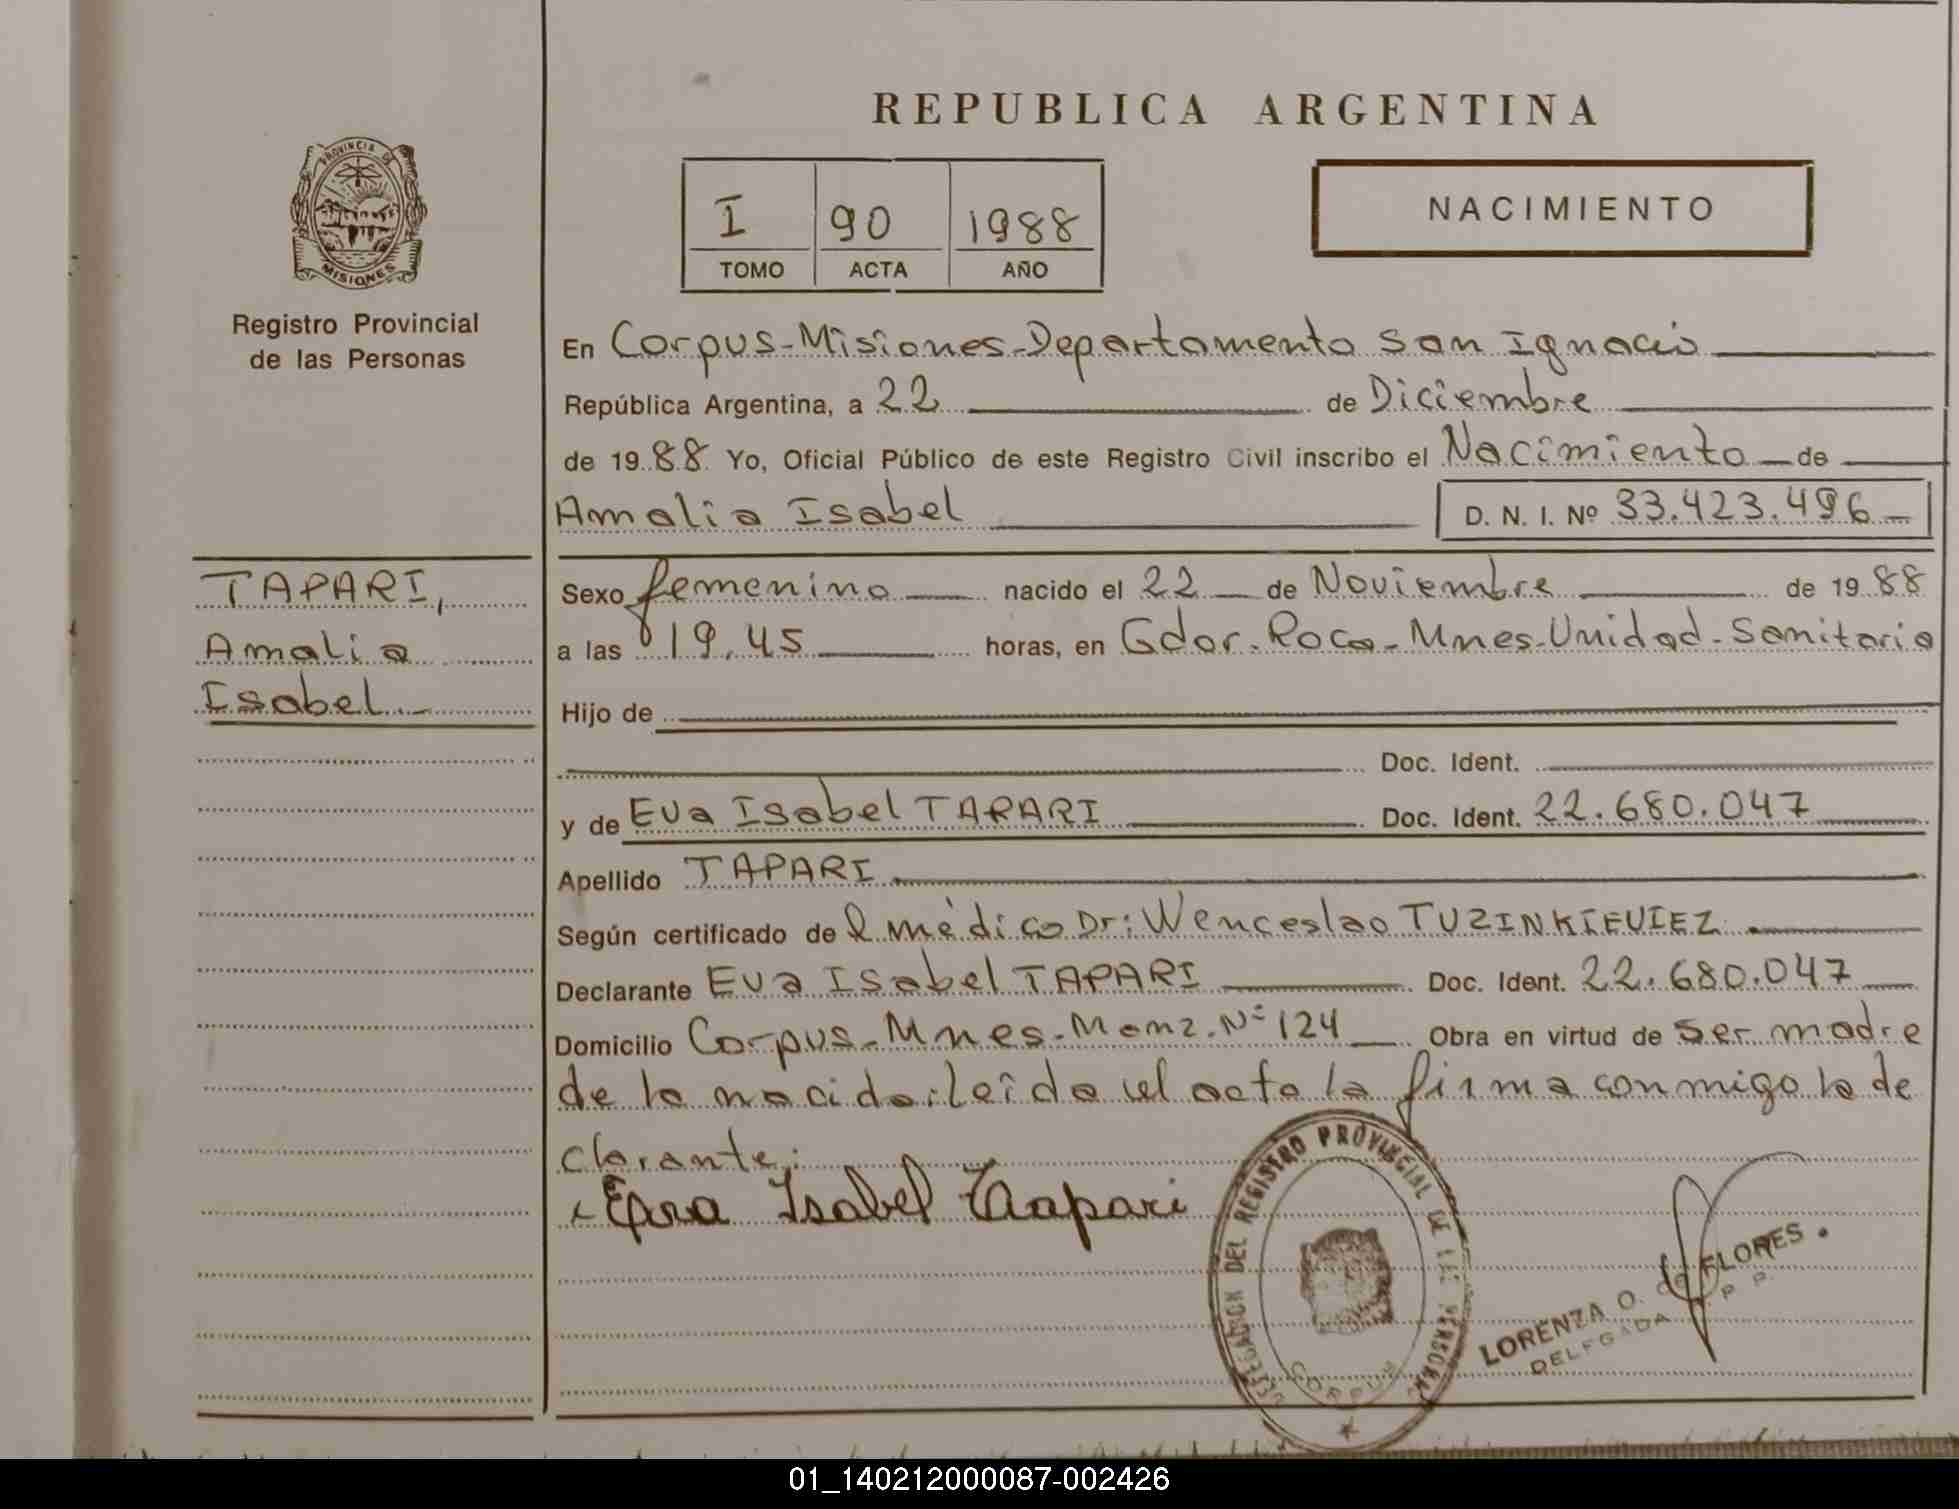 REPUBLICA ARGENTINA
PROVINCIA DE
MISIONES
Registro Provincial
de las Personas
I 90 1988
TOMO ACTA AÑO
NACIMIENTO
En Corpus-Misiones-Departamento San Ignacio
República Argentina, a 22 de Diciembre
de 1988 Yo, Oficial Público de este Registro Civil inscribo el Nacimiento de
Amalia Isabel D. N. I. Nº 33.423.496
TAPARI,
Amalia
Isabel
Sexo femenino nacido el 22 de Noviembre de 1988
a las 19,45 horas, en Gdor. Roca-Mnes-Unidad-Sanitaria
Hijo de
Doc. Ident.
y de Eva Isabel TAPARI Doc. Ident. 22.680.047
Apellido TAPARI
Según certificado del médico Dr: Wenceslao TUZINKIEVIEZ
Declarante Eva Isabel TAPARI Doc. Ident. 22.680.047
Domicilio Corpus-Mnes-Manz. Nº 124 Obra en virtud de ser madre
de la nacida: leída el acta la firma conmigo la de
clarante:
Isabel Tapari
DELEGACION DEL REGISTRO PROVINCIAL DE LAS PERSONAS
CORPUS
LORENZA O. de FLORES
DELEGADA R. P. P.
01_140212000087-002426